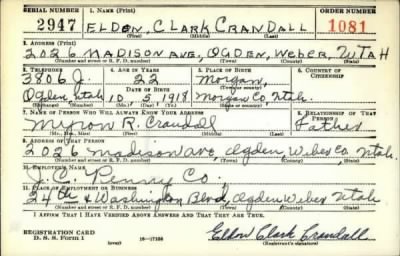 SERIAL NUMBER 1. NAME (Print) ORDER NUMBER
2947 ELDON CLARK CRANDALL 1081
(First) (Middle) (Last)
2. ADDRESS (Print)
2026 MADISON AVE, OGDEN, Weber, UTAH
(Number and street or R. F. D. number) (Town) (County) (State)
3. TELEPHONE 4. AGE IN YEARS 5. PLACE OF BIRTH 6. COUNTRY OF CITIZENSHIP
3806 J. 22 Morgan,
DATE OF BIRTH (Town or county)
Ogden Utah 10 5 1918 Morgan Co. Utah.
(Exchange) (Mo.) (Day) (Yr.) (State or country)
7. NAME OF PERSON WHO WILL ALWAYS KNOW YOUR ADDRESS 8. RELATIONSHIP OF THAT PERSON
Myron R. Crandall Father
(Mr., Mrs., Miss) (First) (Middle) (Last)
9. ADDRESS OF THAT PERSON
2026 Madison ave, Ogden, Weber Co. Utah.
(Number and street or R. F. D. number) (Town) (County) (State)
10. EMPLOYER'S NAME
J. C. Penny Co.
11. PLACE OF EMPLOYMENT OR BUSINESS
24th & Washington Blvd, Ogden Weber Utah
(Number and street or R. F. D. number) (Town) (County) (State)
I AFFIRM THAT I HAVE VERIFIED ABOVE ANSWERS AND THAT THEY ARE TRUE.
REGISTRATION CARD
D. S. S. Form 1 (over) 16—17105 Eldon Clark Crandall
(Registrant's signature)